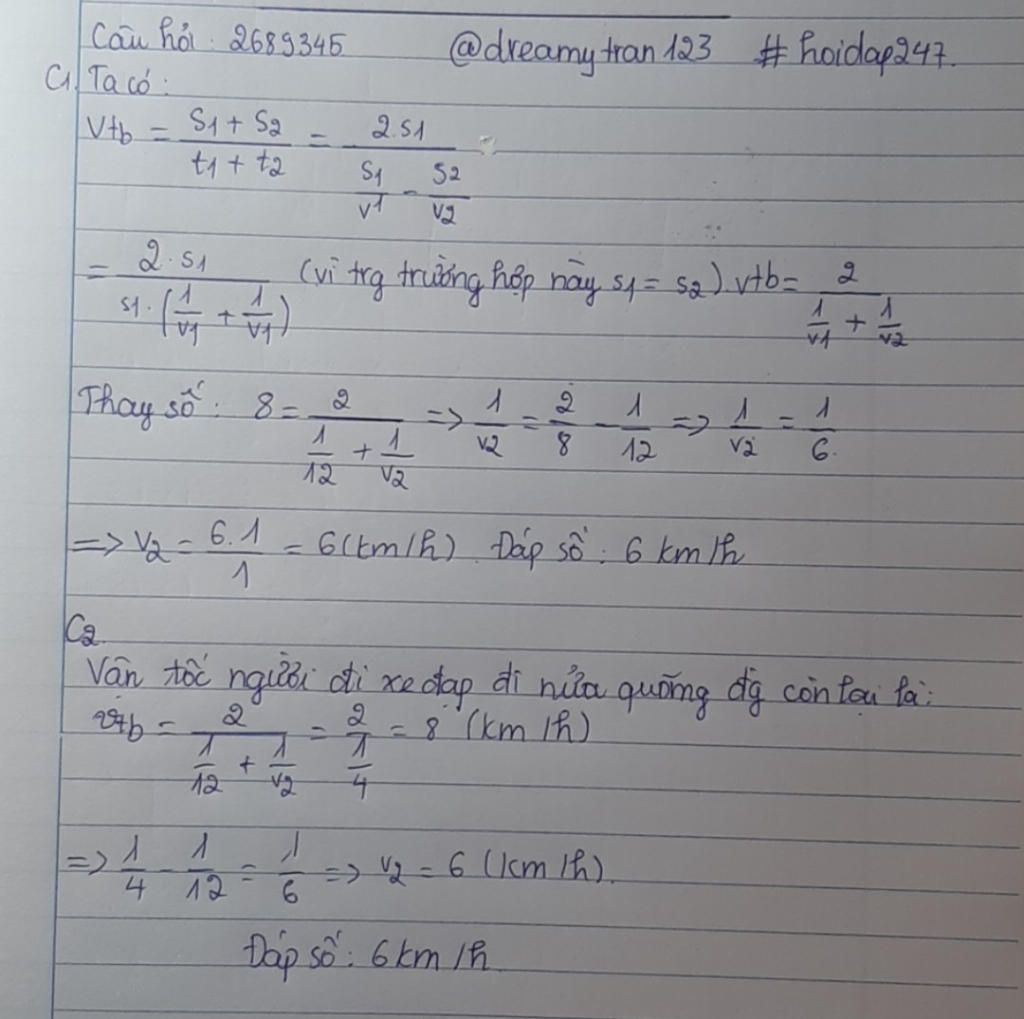 Câu hỏi: 2689345 @dreamytran123 #hoidap247.
C1. Ta có:
Vtb = (S1 + S2)/(t1 + t2) = 2.S1/(S1/v1 - S2/v2)
= 2.S1/(S1.(1/v1 + 1/v1)) (vì trg trường hợp này S1 = S2). vtb = 2/(1/v1 + 1/v2)
Thay số: 8 = 2/(1/12 + 1/v2) => 1/v2 = 2/8 - 1/12 => 1/v2 = 1/6.
=> V2 = 6.1/1 = 6 (km/h). Đáp số: 6 km/h
C2.
Vân tốc người đi xe đạp đi nửa quãng đg còn lại là:
vtb = 2/(1/12 + 1/v2) = 2/(1/4) = 8 (km/h)
=> 1/4 - 1/12 = 1/6 => v2 = 6 (km/h).
Đáp số: 6 km/h